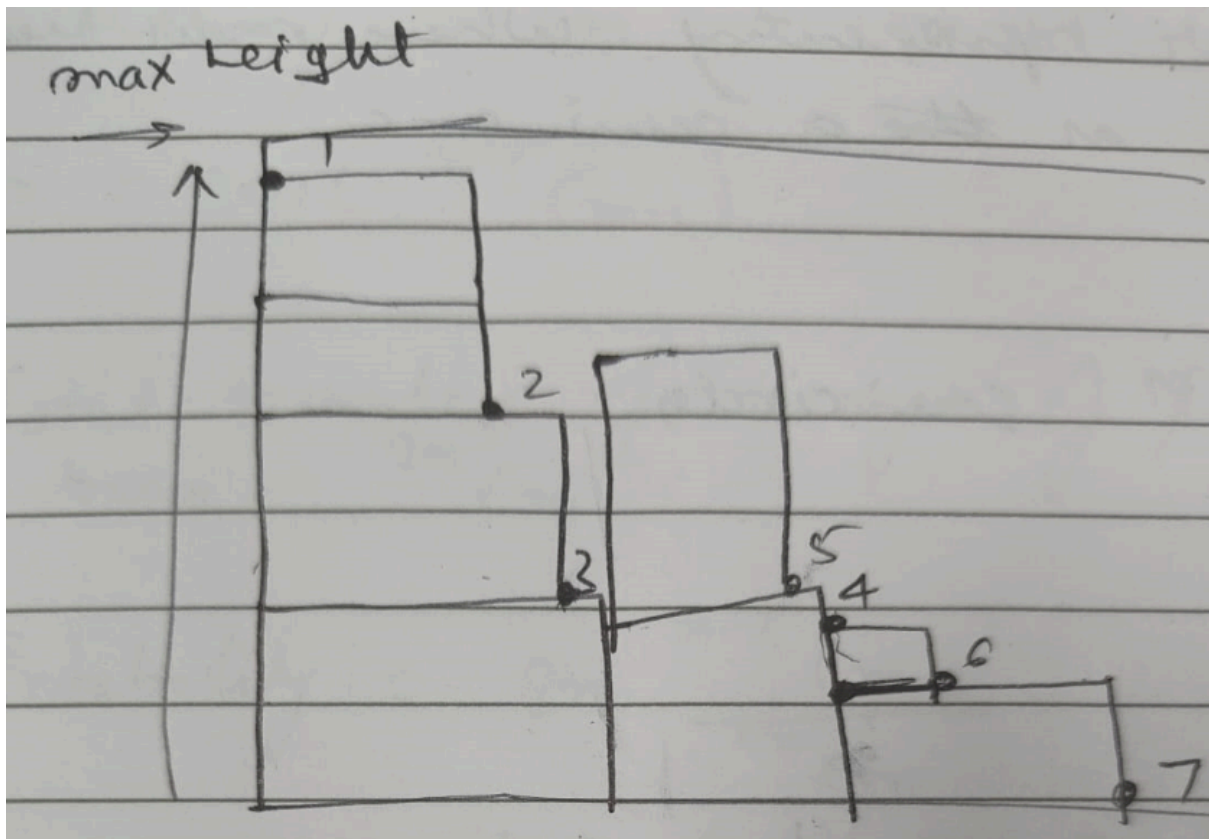 max height
1
2
3
5
4
6
7